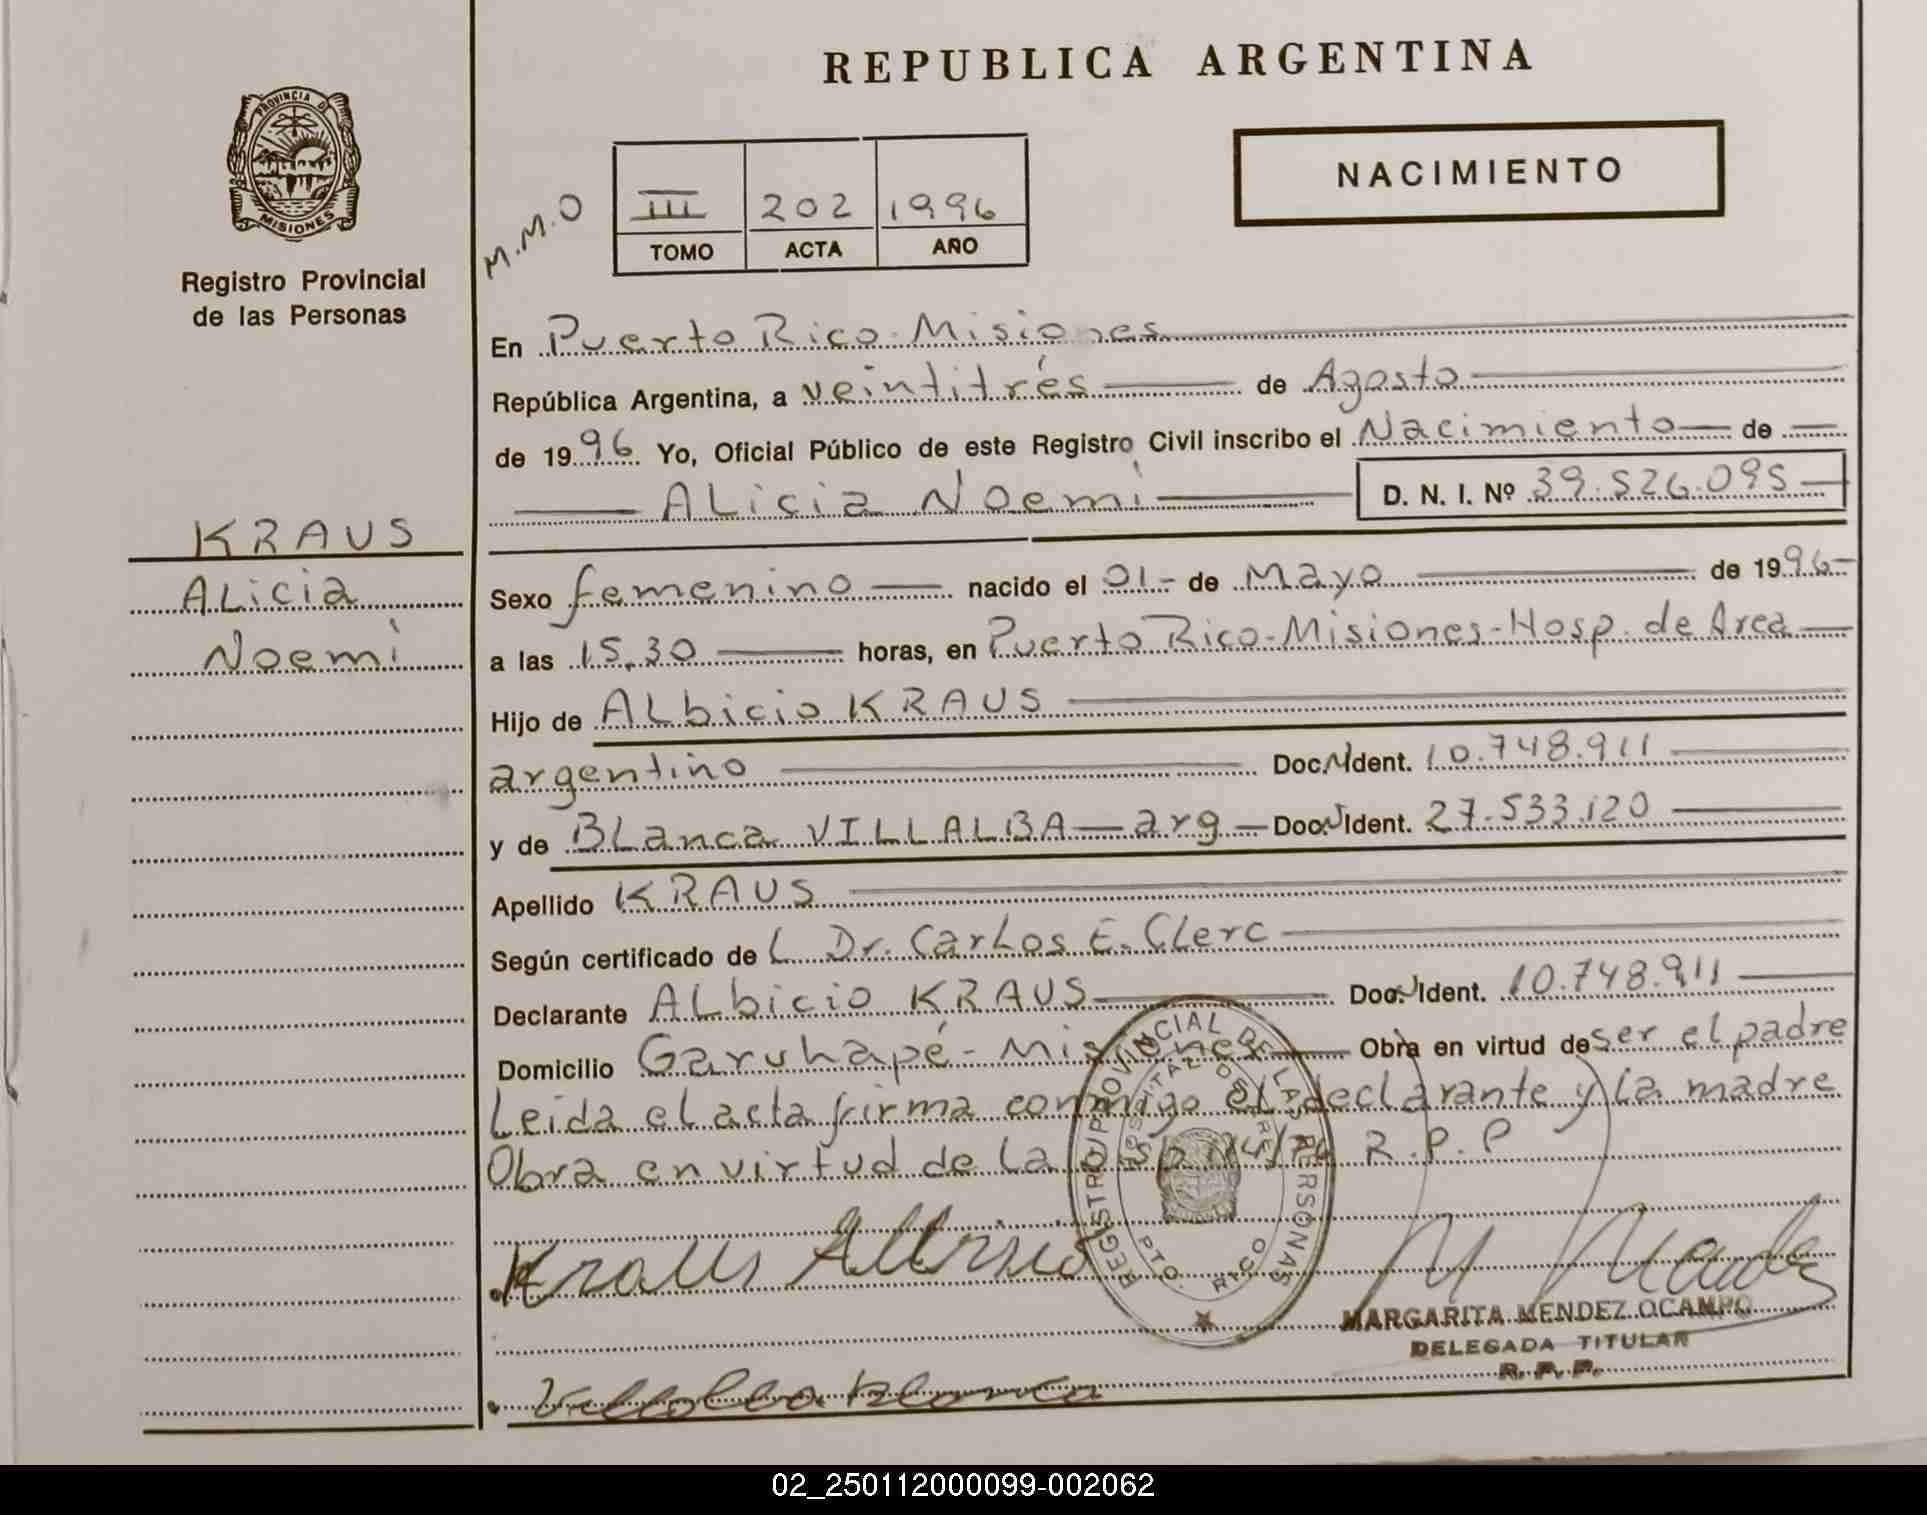 REPUBLICA ARGENTINA
PROVINCIA DE
MISIONES
Registro Provincial
de las Personas
NACIMIENTO
M.M.O
III 202 1996
TOMO ACTA AÑO
En Puerto Rico-Misiones
República Argentina, a veintitrés de Agosto
de 1996 Yo, Oficial Público de este Registro Civil inscribo el Nacimiento de
ALicia Noemí D. N. I. Nº 39.526.095
KRAUS
ALicia
Noemí
Sexo femenino nacido el 01- de Mayo de 1996-
a las 15,30 horas, en Puerto Rico-Misiones-Hosp. de Area
Hijo de ALbicio KRAUS
argentino Doc. Ident. 10.748.911
y de BLanca VILLALBA - arg - Doc. Ident. 27.533.120
Apellido KRAUS
Según certificado de L Dr. CarLos E. CLerc
Declarante ALbicio KRAUS Doc. Ident. 10.748.911
Domicilio Garuhapé - Misiones Obra en virtud de ser el padre
Leida el acta firma conmigo el declarante y La madre
Obra en virtud de La R.P.P
REGISTRO PROVINCIAL DE LAS PERSONAS
PTO. RICO
Kraus Albicio
MARGARITA MENDEZ OCAMPO
DELEGADA TITULAR
R. P. P.
Villalba Blanca
02_250112000099-002062